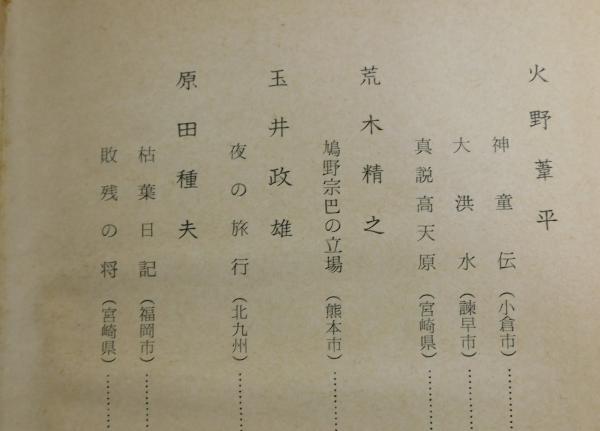 火野葦平
神童伝（小倉市）…………
大洪水（諫早市）…………
真説高天原（宮崎県）…………
荒木精之
鳩野宗巴の立場（熊本市）…………
玉井政雄
夜の旅行（北九州）…………
原田種夫
枯葉日記（福岡市）…………
敗残の将（宮崎県）…………